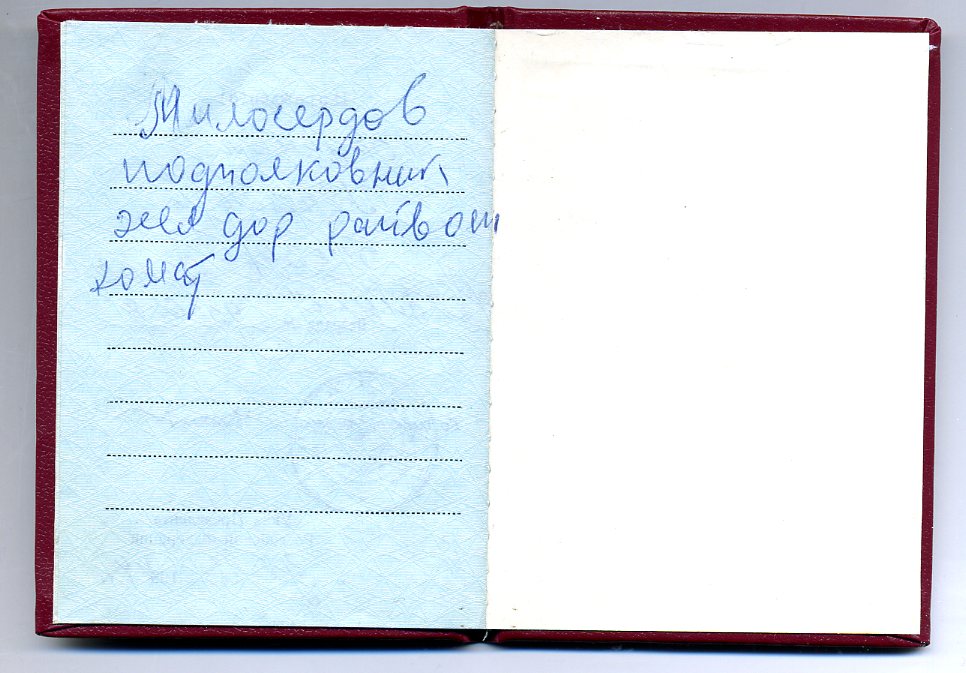 Милосердов
подполковник
жел дор райвоен
комат